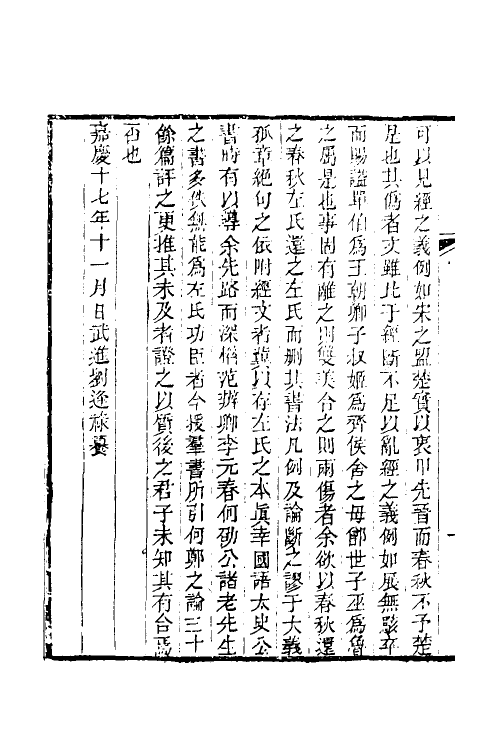 可以見經之義例如宋之盟楚實以衷甲先晉而春秋不予楚
是也其偽者文雖比于經斷不足以亂經之義例如展無駭卒
而賜謚單伯爲王朝卿子叔姬爲齊侯舍之母鄫世子巫爲魯
之屬是也事固有離之則雙美合之則兩傷者余欲以春秋還
之春秋左氏還之左氏而刪其書法凡例及論斷之謬于大義
孤章絕句之依附經文者冀以存左氏之本眞幸國語太史公
書時有以導余先路而深惜范辨卿李元春何劭公諸老先生
之書多佚無能爲左氏功臣者今援羣書所引何鄭之論三十
餘篇評之更推其未及者證之以質後之君子未知其有合焉
否也
嘉慶十七年十一月日武進劉逢祿譔